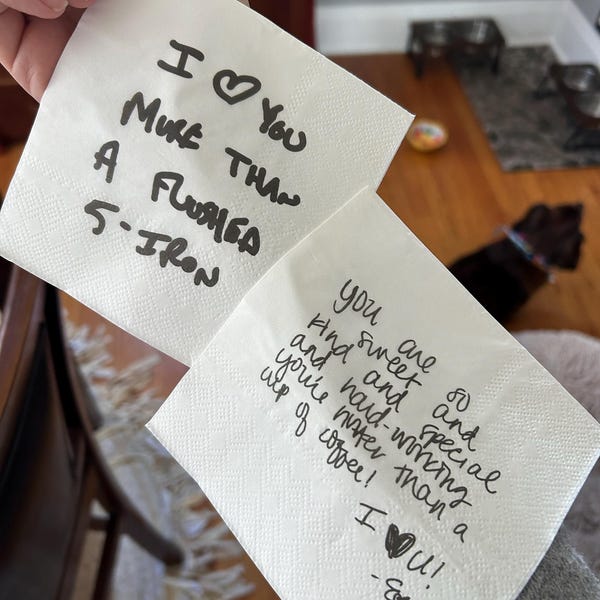 I ♡ YOU
MORE THAN
A FLUSHED
5-IRON
you are so
kind and and
sweet and special
and hard-working
you're hotter than a
cup of coffee!
I ♥ U!